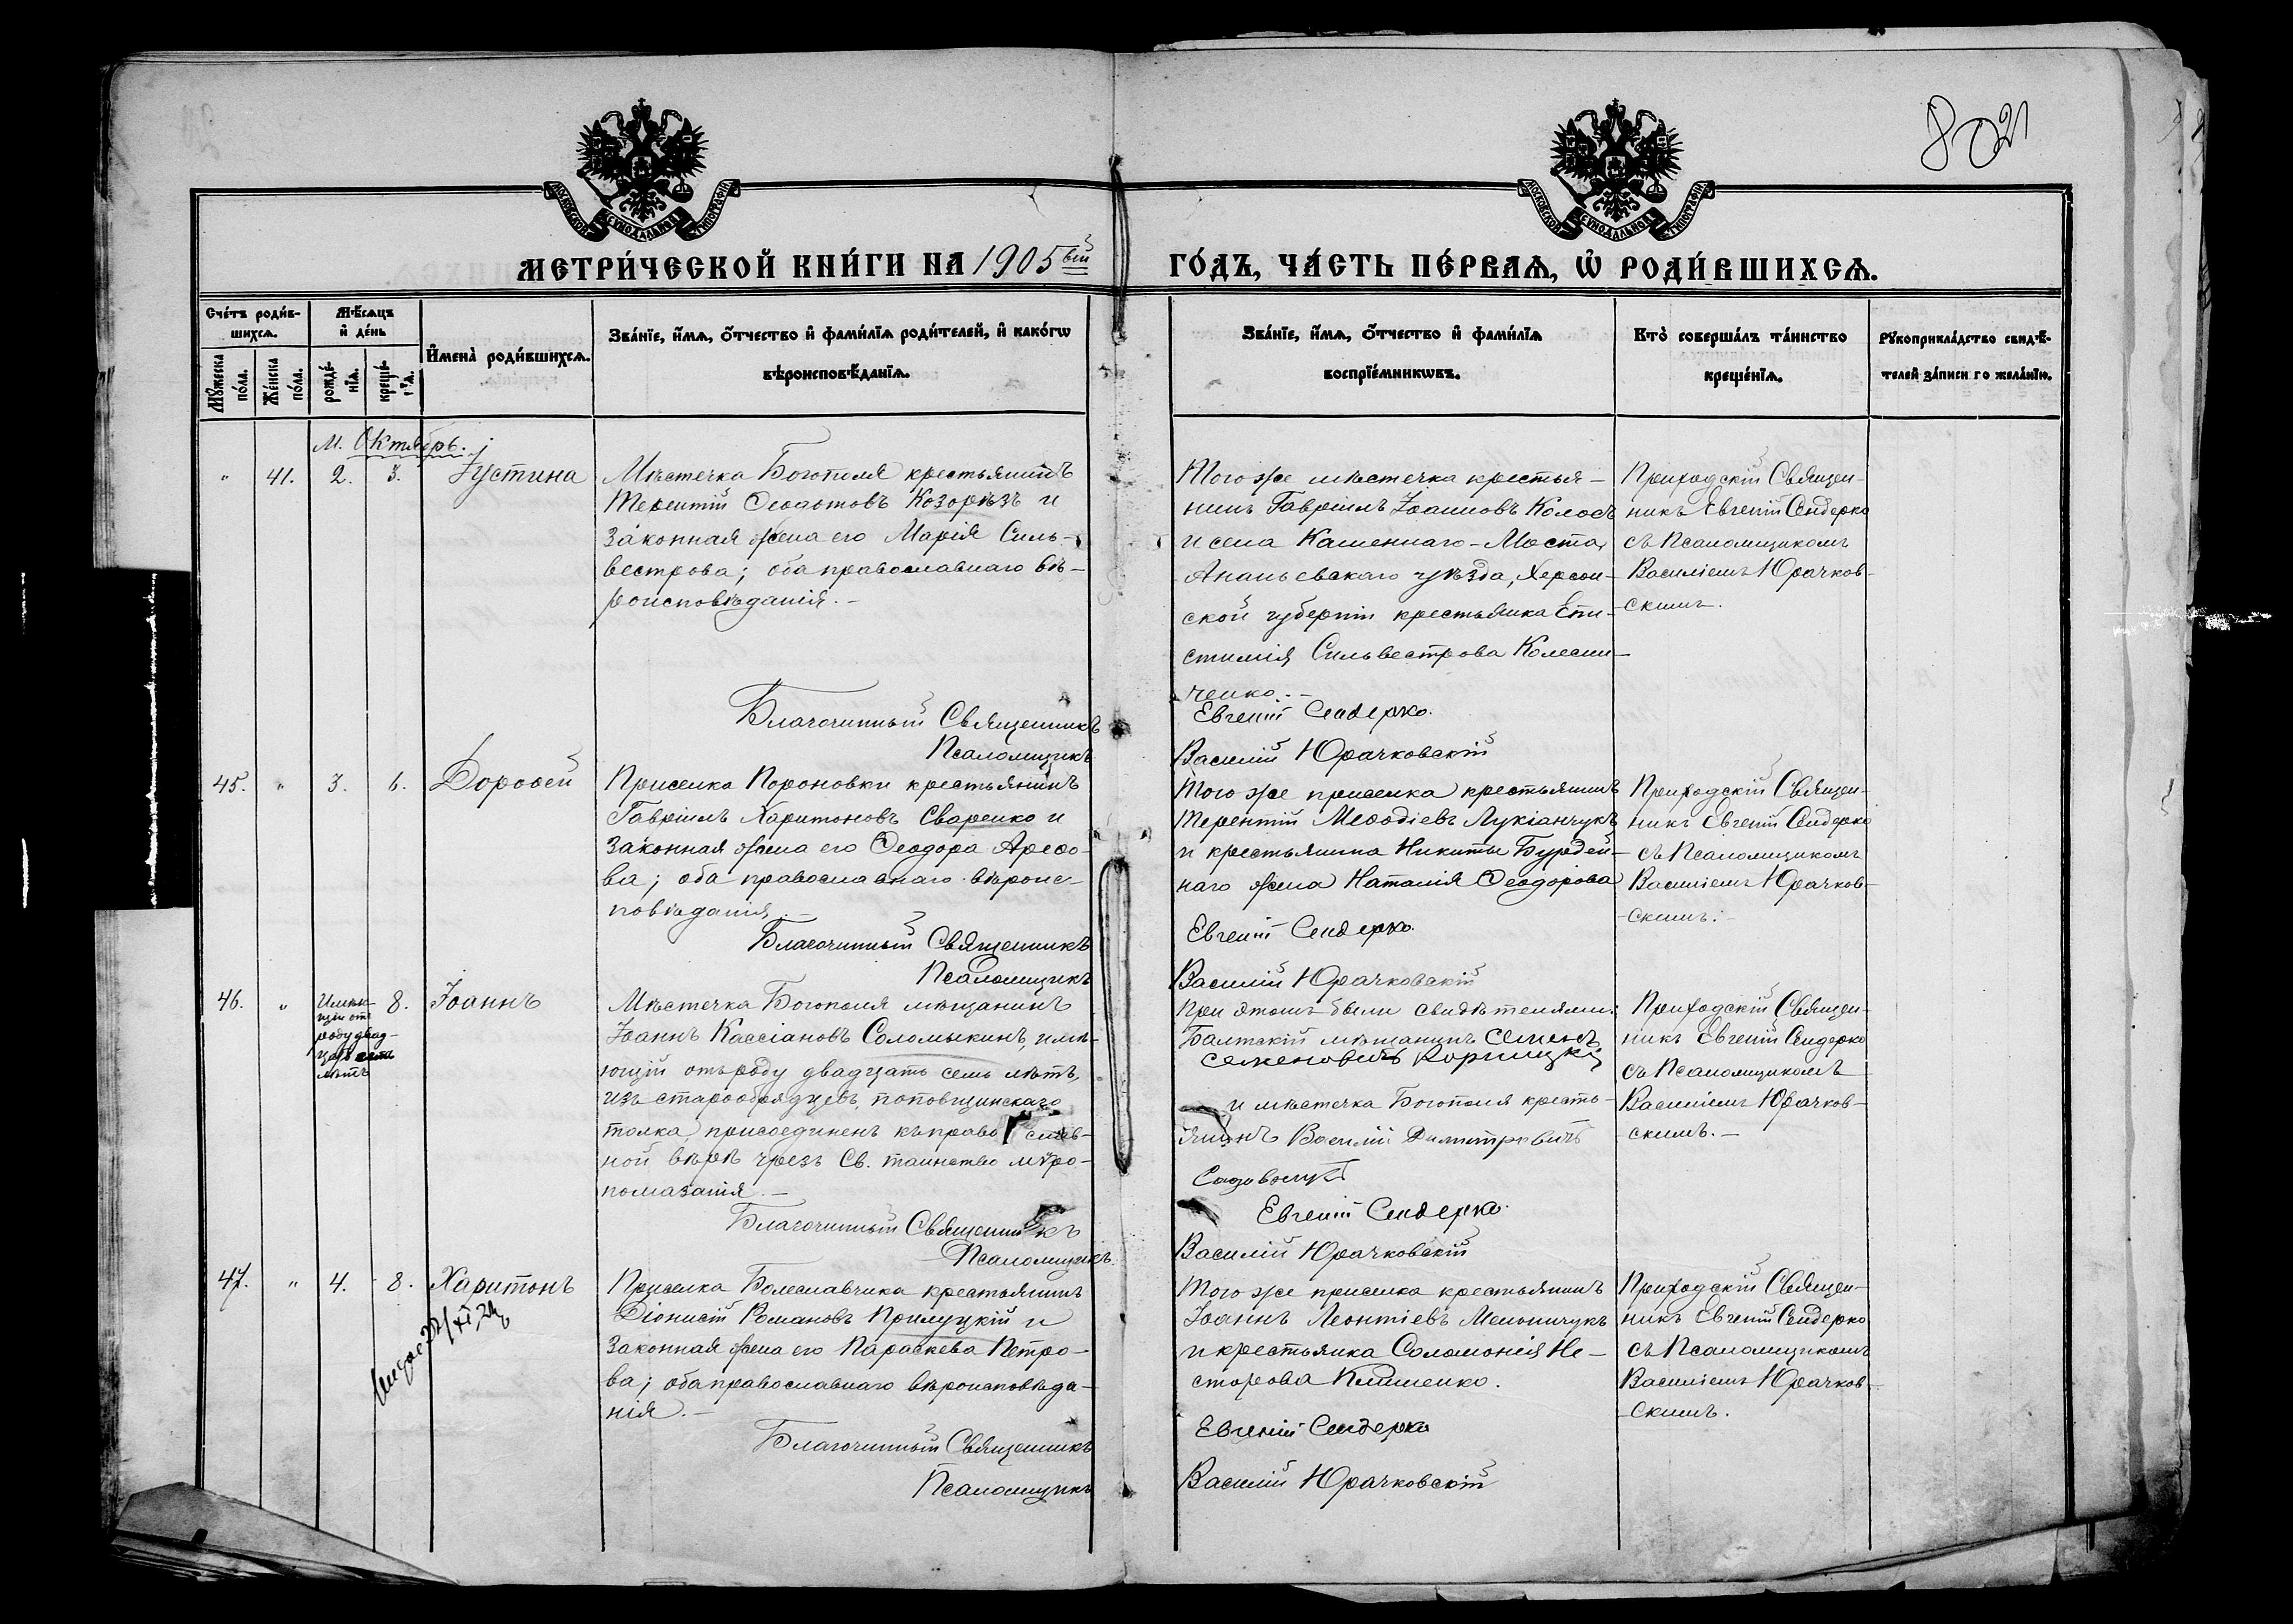 21
МОСКОВСКОЙ СУНОДАЛЬНОЙ ТИПОГРАФІИ
МОСКОВСКОЙ СУНОДАЛЬНОЙ ТИПОГРАФІИ
МЕТРИ́ЧЕСКОЙ КНИ́ГИ НА 1905вый
ГО́ДЪ, ЧА́СТЬ ПЕ́РВАѦ, Ѡ҆ РОДИ́ВШИХСѦ.
Сче́тъ роди́в-
шихсѧ.
Мꙋ́жеска по́ла.
Же́нска по́ла.
Мѣ́сѧцъ
и҆ де́нь
рожде́-
нїѧ.
креще́-
нїѧ.
И҆мена̀ роди́вшихсѧ.
Зва́нїе, и҆́мѧ, ѻ҆́тчество и҆ фами́лїѧ роди́телей, и҆ како́гѡ
вѣроисповѣ́данїѧ.
Зва́нїе, и҆́мѧ, ѻ҆́тчество и҆ фами́лїѧ
воспрїе́мникѡвъ.
Кто̀ соверша́лъ та́инство
креще́нїѧ.
Рꙋкоприкла́дство свидѣ́-
телей за́писи по жела́нїю.
М. Октябрь.
" 41. 2. 3. Іустина
Мѣстечка Богополя крестьянинъ
Терентій Ѳеодотовъ Козорѣзъ и
законная жена его Марія Силь-
вестрова; оба православнаго вѣ-
роисповѣданія.-
Благочинный Священникъ
Псаломщикъ
Того же мѣстечка крестья-
нинъ Гавріилъ Іоанновъ Колосъ
и села Каменнаго-Моста,
Ананьевскаго уѣзда, Херсон-
ской губерніи крестьянка Епи-
стимія Сильвестрова Колесни-
ченко.-
Евгеній Сендерко.
Василій Юрачковскій
Приходскій Священ-
никъ Евгеній Сендерко
съ Псаломщикомъ
Василіемъ Юрачков-
скимъ.
45. " 3. 6. Дороѳей
Приселка Пороновки крестьянинъ
Гавріилъ Харитоновъ Сваренко и
законная жена его Ѳеодора Ареѳо-
ва; оба православнаго вѣроис-
повѣданія.-
Благочинный Священникъ
Псаломщикъ
Того же приселка крестьянинъ
Терентій Меѳодіевъ Лукіанчукъ
и крестьянина Никиты Бурдей-
наго жена Наталія Ѳеодорова
Евгеній Сендерко.
Василій Юрачковскій
Приходскій Священ-
никъ Евгеній Сендерко
съ Псаломщикомъ
Василіемъ Юрачков-
скимъ.-
46. " Имѣю-
щій отъ
роду двад-
цать семь
лѣтъ 8. Іоаннъ
Мѣстечка Богополя мѣщанинъ
Іоаннъ Кассіановъ Соломыкинъ, имѣ-
ющій отъ роду двадцать семь лѣтъ,
изъ старообрядцевъ, поповщинскаго
толка, присоединенъ къ православ-
ной вѣрѣ чрезъ Св. таинство мѵро-
помазанія.-
Благочинный Священникъ
Псаломщикъ
При этомъ были свидѣтелями:
Балтскій мѣщанинъ Семенъ
Семеновичъ
и мѣстечка Богополя кресть-
янинъ Василій Димитровичъ
Евгеній Сендерко.
Василій Юрачковскій
Приходскій Священ-
никъ Евгеній Сендерко
съ Псаломщикомъ
Василіемъ Юрачков-
скимъ.-
47. " 4. 8. Харитонъ
Приселка Болеславчика крестьянинъ
Діонисій Романовъ Прилуцкій и
законная жена его Параскева Петро-
ва; оба православнаго вѣроисповѣда-
нія.-
Благочинный Священникъ
Псаломщикъ
Того же приселка крестьянинъ
Іоаннъ Леонтіевъ Мельничукъ
и крестьянка Соломонія Не-
сторова Клименко.
Евгеній Сендерко
Василій Юрачковскій
Приходскій Священ-
никъ Евгеній Сендерко
съ Псаломщикомъ
Василіемъ Юрачков-
скимъ.